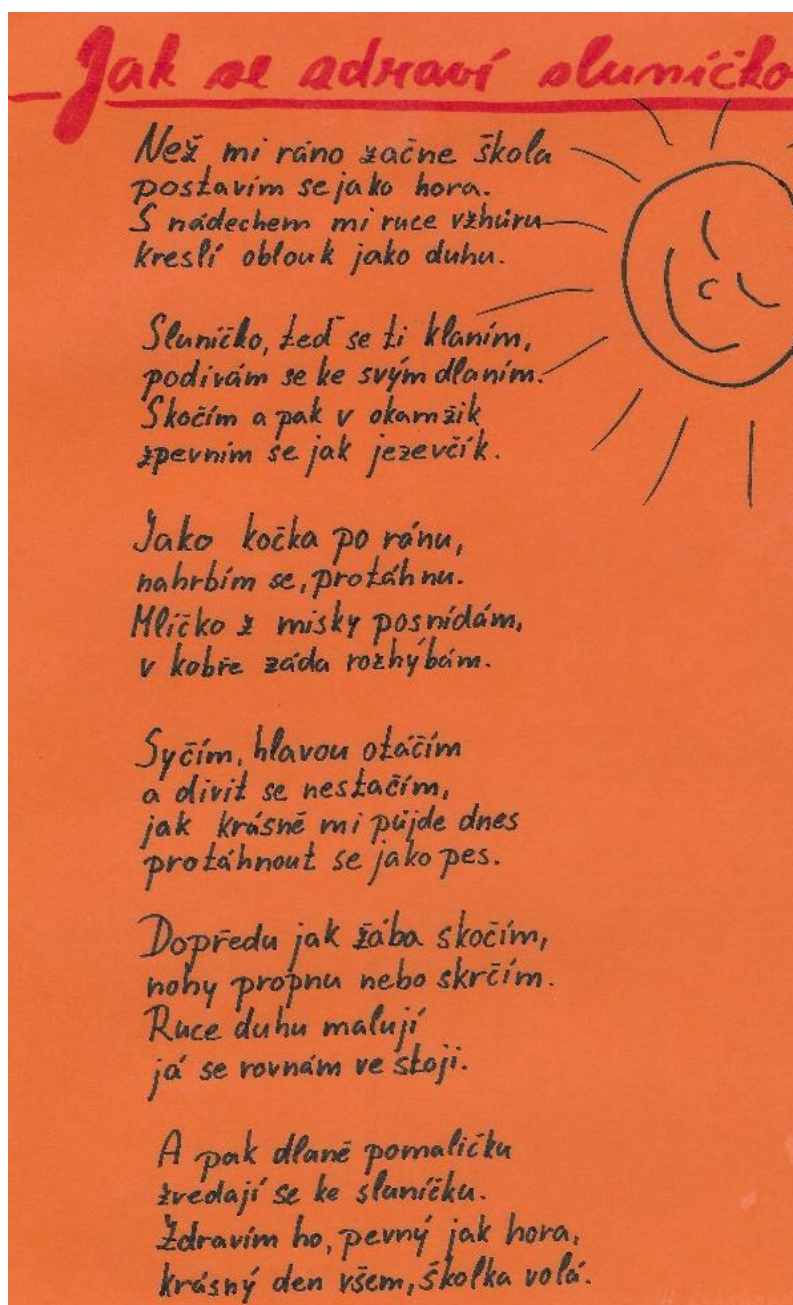 Jak se zdraví sluníčko
Než mi ráno začne škola
postavím se jako hora.
S nádechem mi ruce vzhůru
kreslí oblouk jako duhu.
Sluníčko, teď se ti klaním,
podívám se ke svým dlaním.
Skočím a pak v okamžik
zpevním se jak jezevčík.
Jako kočka po ránu,
nahrbím se, protáhnu.
Mlíčko z misky posnídám,
v kobře záda rozhýbám.
Syčím, hlavou otáčím
a divit se nestačím,
jak krásně mi půjde dnes
protáhnout se jako pes.
Dopředu jak žába skočím,
nohy propnu nebo skrčím.
Ruce duhu malují
já se rovnám ve stoji.
A pak dlaně pomaličku
zvedají se ke sluníčku.
Zdravím ho, pevný jak hora,
krásný den všem, školka volá.